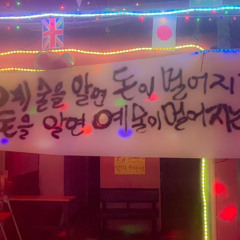 예술을 알면 돈이 멀어지
돈을 알면 예술이 멀어지는